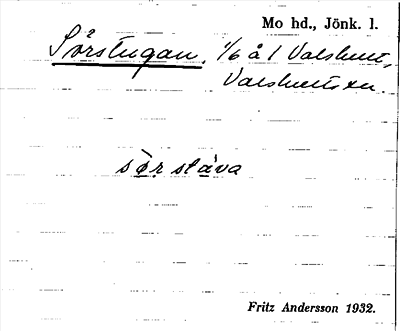 Mo hd., Jönk. l.
Sörstugan. 1/6 å 1 Valshult,
Valshults sn.
sör stάva
Fritz Andersson 1932.